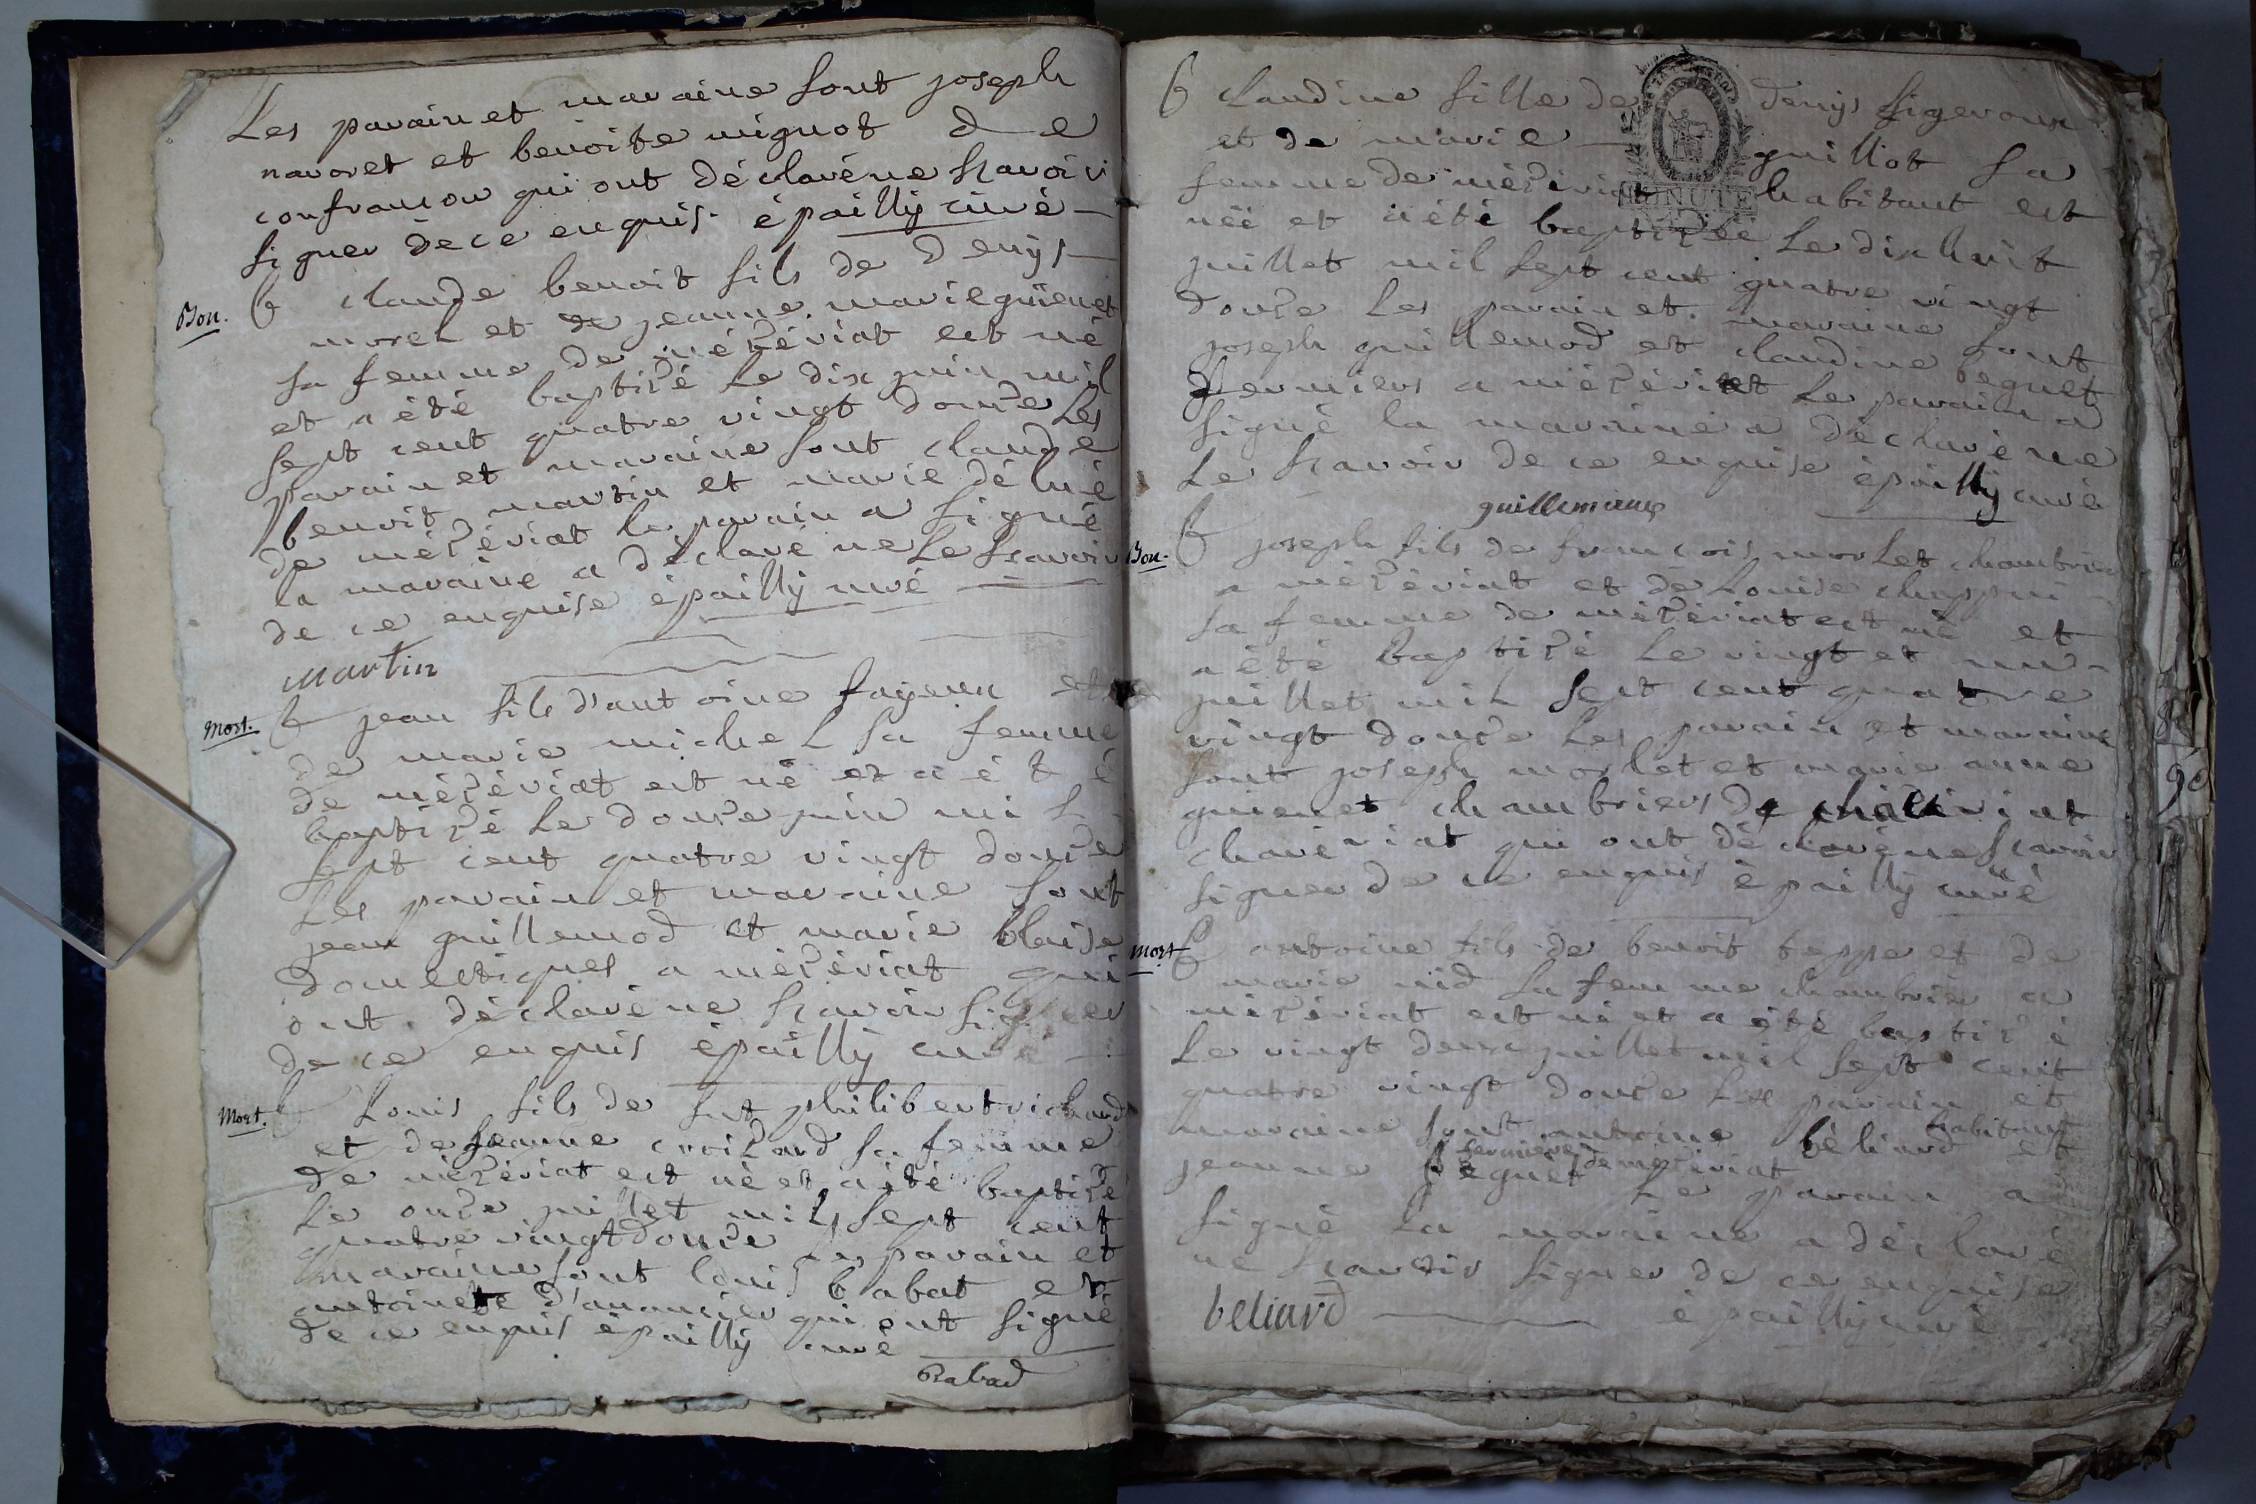 Les parain et maraine sont joseph
navoret et benoite mignot de
confrancon qui ont déclaré ne scavoir
signer de ce enquis. épailly curé
Bon. B claude benoit fils de denys
morel et de jeanne marie guienet
sa femme de mézériat est né
et a été baptizé le dix juin mil
sept cent quatre vingt douze les
parain et maraine sont claude
benoit martin et marie
de mézériat le parain a signé
la maraine a déclaré ne le scavoir
de ce enquise épailly curé
martin
Mort. B jean fils d'antoine fayeux et
de marie michel sa femme
de mézériat est né et a été
baptizé le douze juin mil
sept cent quatre vingt douze
les parain et maraine sont
jean guillemod et marie blaise
domestiques a mézériat qui
ont déclaré ne scavoir signer
de ce enquis épailly curé
Mort. B Louis fils de fut philibert richard
et de jeanne croizard sa femme
de mézériat est né et a été baptizé
le onze juillet mil sept cent
quatre vingt douze les parain et
maraine sont louis babat et
antoinette d'anancier qui ont signé
de ce enquis épailly curé
Babad
B claudine fille de denys figeroux
et de marie guillot sa
femme de mézériat habitant est
néé et a été baptizéé le dix huit
juillet mil sept cent quatre vingt
douze les parain et maraine sont
joseph guillemod et claudine peguet
fermiers a mézériat le parain a
signé la maraine a déclaré ne
le scavoir de ce enquise épailly curé
guillemaud
Bon. B joseph fils de francois morlet chambrier
a mézériat et de Louise chappui
sa femme de mézériat est né et
a été baptizé le vingt et un
juillet mil sept cent quatre
vingt douze les parain et maraine
sont joseph morlet et marie anne
guienet chambriers de
chavériat qui ont déclaré ne scavoir
signer de ce enquis épailly curé
Mort B antoine fils de benoit teppe et de
marie nid sa femme chambrier a
mézériat est né et a été baptizé
le vingt deux juillet mil sept cent
quatre vingt douze les parain et
habitant
maraine sont antoine béliard et
fermiere de mézériat
jeanne peguet le parain a
signé la maraine a déclaré
ne scavoir signer de ce enquise
beliard épailly curé